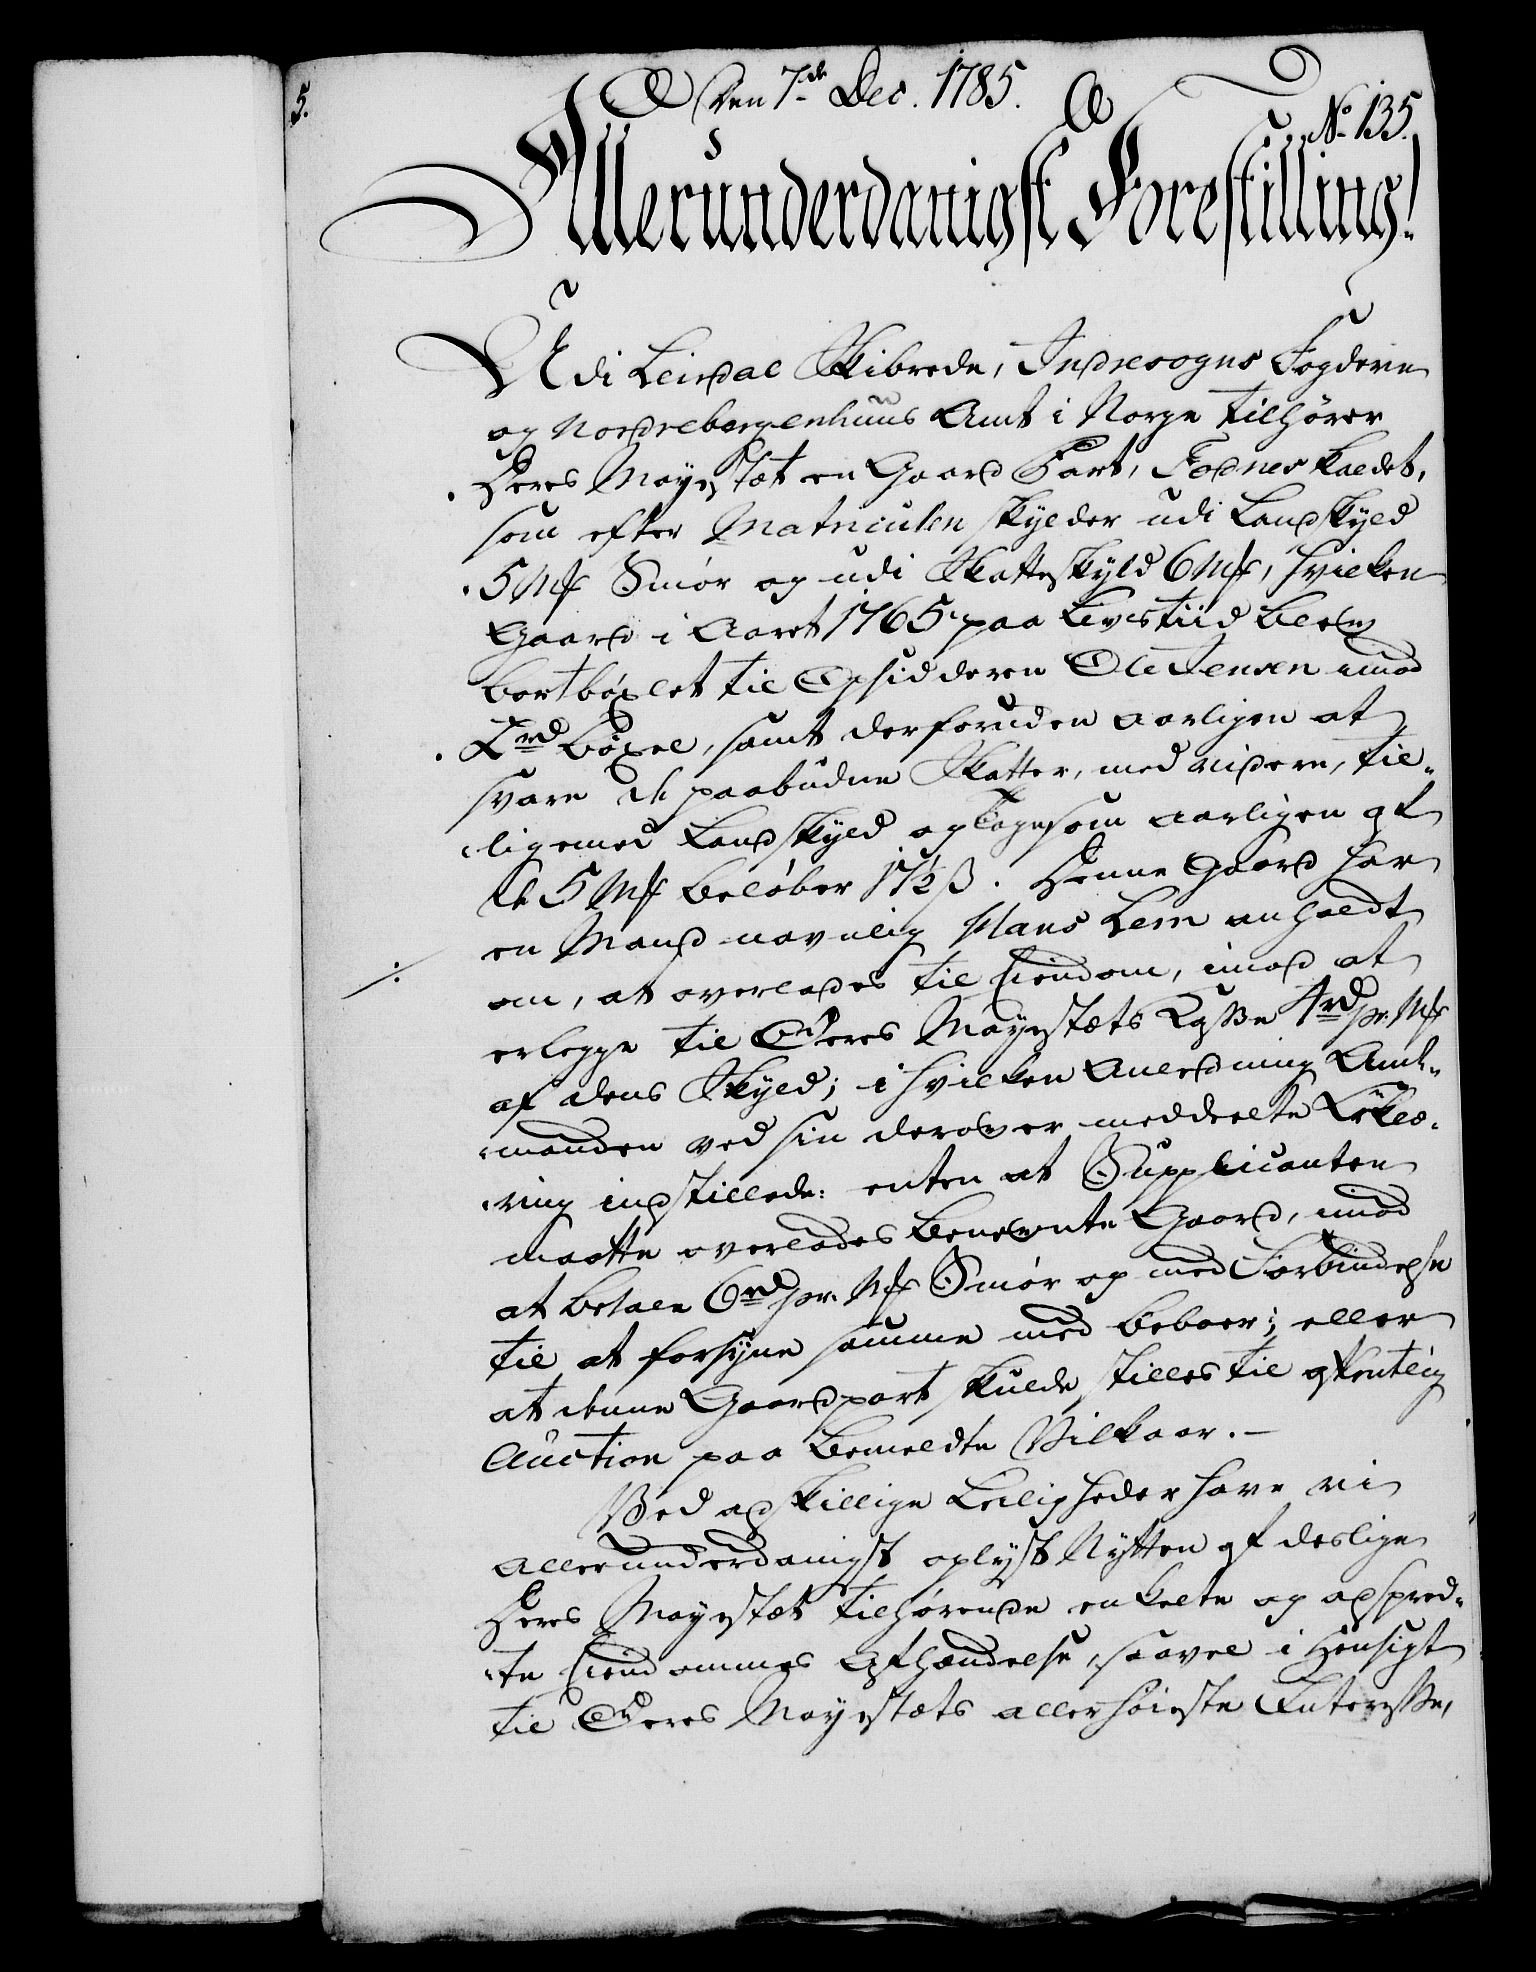 5.
Den 7de Dec. 1785.
No 135.
Allerunderdanigst Forestilling!
Udi Leirdal Skibrede, Indresogns Fogderie
og Nordrebergenhuus Amt i Norge tilhører
Deres Mayestæt en Gaard Part, Fodnes kaldet,
som efter Matriculen skylder udi Landskyld
5 Mk Smør og udi Skatteskyld 6 Mk, hvilken
Gaard i Aaret 1765 paa Livstiid blev
bortbøxlet til Opsidderen Ole Jensen imod
2 rd Bøxel, samt derforuden aarligen at
svare de paabudne Skatter, med videre, til„
„ligemed Landskyld og som aarligen af
de 5 Mk beløber 17½ ß. Denne Gaard har
en Mand navnlig Hans Lem anholdt
om, at overlades til Eiendom, imod at
erlegge til Deres Mayestæts Casse 4 rd pr. Mk
af dens Skyld; i hvilken Anledning Amt„
„manden ved sin derover meddeelte Erklæ„
„ring indstillede: enten at Supplicanten
maatte overlades benevnte Gaard, imod
at betale 6 rd pr. Mk Smør og med Forbindelse
til at forsyne samme med Beboer; eller
at denne Gaardpart skulde stilles til offentlig
Auction paa bemeldte Vilkaar. –
Ved adskillige Leiligheder have vi
allerunderdanigst oplyst Nytten af deslige
Deres Mayestæt tilhørende enkelte og adspred„
„te Eiendommes Afhændelse, saavel i Hensigt
til Deres Mayestæts allerhøieste Interesse,